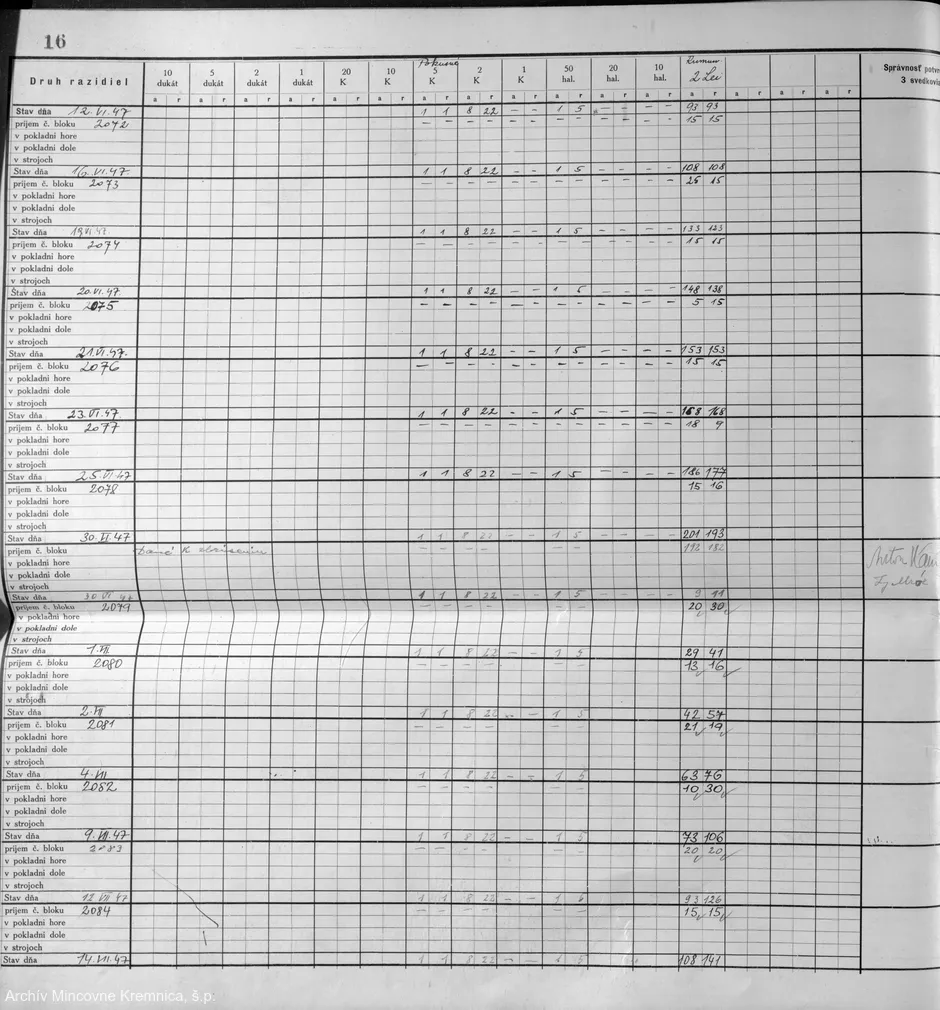 16
Druh razidiel 10 dukát 5 dukát 2 dukát 1 dukát 20 K 10 K Pokusné 5 K 2 K 1 K 50 hal. 20 hal. 10 hal. 2 Lei Správnosť potve 3 svedkovia
a r a r a r a r a r a r a r a r a r a r a r a r a r a r a r
Stav dňa 12.VI.47 1 1 8 22 – – 1 5 – – – – 93 93
príjem č. bloku 2072 – – – – – – – – – – – – 15 15
v pokladni hore
v pokladni dole
v strojoch
Stav dňa 16.VI.47. 1 1 8 22 – – 1 5 – – – – 108 108
príjem č. bloku 2073 – – – – – – – – – – – – 25 15
v pokladni hore
v pokladni dole
v strojoch
Stav dňa 19.VI.47 1 1 8 22 – – 1 5 – – – – 133 123
príjem č. bloku 2074 – – – – – – – – – – – – 15 15
v pokladni hore
v pokladni dole
v strojoch
Stav dňa 20.VI.47 1 1 8 22 – – 1 5 – – – – 148 138
príjem č. bloku 2075 – – – – – – – – – – – – 5 15
v pokladni hore
v pokladni dole
v strojoch
Stav dňa 21.VI.47. 1 1 8 22 – – 1 5 – – – – 153 153
príjem č. bloku 2076 – – – – – – – – – – – – 15 15
v pokladni hore
v pokladni dole
v strojoch
Stav dňa 23.VI.47. 1 1 8 22 – – 1 5 – – – – 168 168
príjem č. bloku 2077 – – – – – – – – – – – – 18 9
v pokladni hore
v pokladni dole
v strojoch
Stav dňa 25.VI.47 1 1 8 22 – – 1 5 – – – – 186 177
príjem č. bloku 2078 15 16
v pokladni hore
v pokladni dole
v strojoch
Stav dňa 30.VI.47 1 1 8 22 1 5 201 193
príjem č. bloku Dané k – – – – 192 182
v pokladni hore Anton
v pokladni dole
v strojoch
Stav dňa 30 VI 47 1 1 8 22 – – 1 5 9 11
príjem č. bloku 2079 – – – – – – 20 30
v pokladni hore
v pokladni dole
v strojoch
Stav dňa 1.VII 1 1 8 22 – – 1 5 29 41
príjem č. bloku 2080 – – – – – – 13 16
v pokladni hore
v pokladni dole
v strojoch
Stav dňa 2.VII 1 1 8 22 – – 1 5 42 57
príjem č. bloku 2081 – – – – – – 21 19
v pokladni hore
v pokladni dole
v strojoch
Stav dňa 4.VII 1 1 8 22 – – 1 5 63 76
príjem č. bloku 2082 – – – – – – 10 30
v pokladni hore
v pokladni dole
v strojoch
Stav dňa 9.VII.47 1 1 8 22 – – 1 5 73 106
príjem č. bloku 2083 – – – – – – 20 20
v pokladni hore
v pokladni dole
v strojoch
Stav dňa 12 VII 47 1 1 8 22 – – 1 5 93 126
príjem č. bloku 2084 – – – – – – 15 15
v pokladni hore
v pokladni dole
v strojoch
Stav dňa 14.VII.47 1 1 8 22 – – 1 5 108 141
Archív Mincovne Kremnica, š.p.